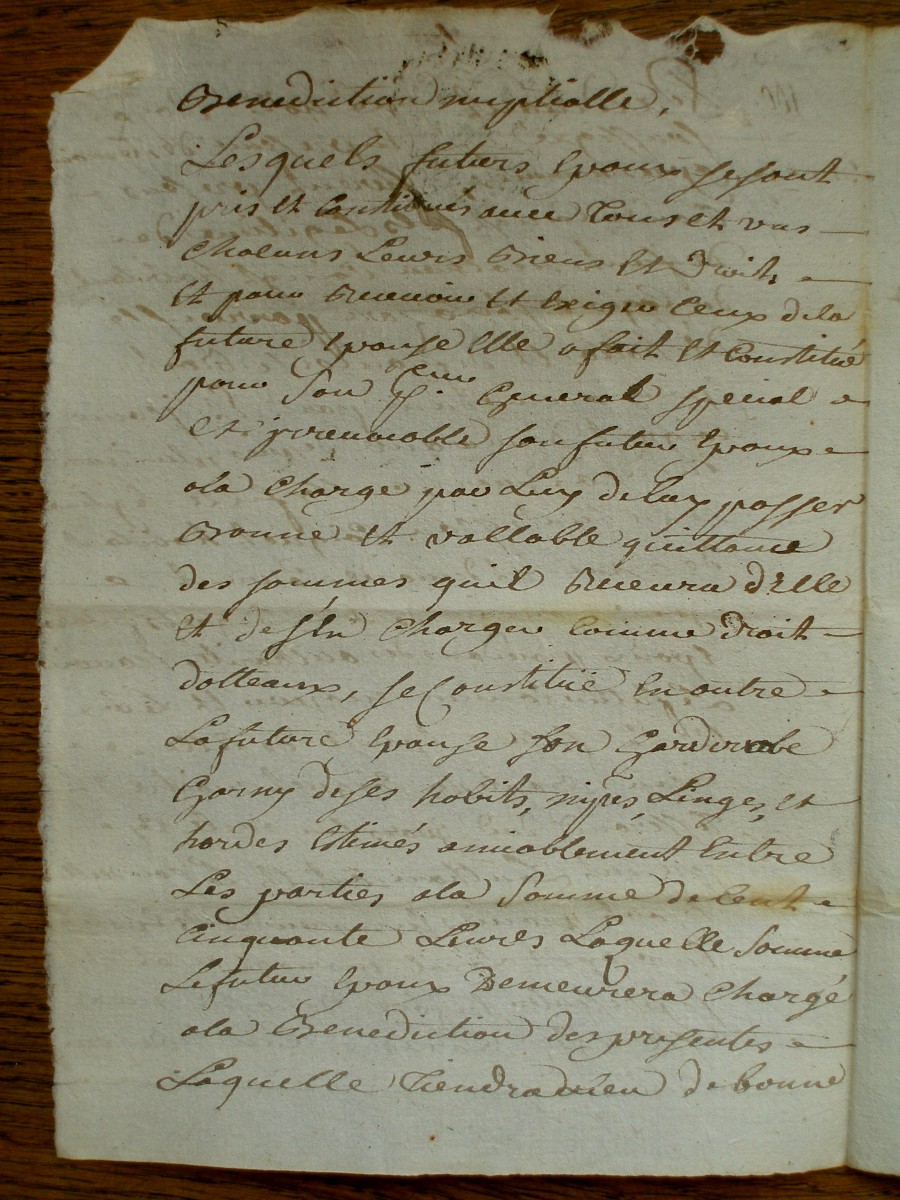 Benediction nuptialle,
Lesquels futurs Epoux se sont
pris et Constitués avec Tous et uns
Chacuns Leurs Biens Et droits
Et pour Recevoir Et Exiger Ceux de la
future Epouse Elle a fait Et Constitué
pour Son General special
Et irrevocable son futur Epoux
ala Charge par Luy de luy passer
Bonne Et vallable quittance
des sommes quil Recevra dElle
Et de sEn Charger Comme droit
dotteaux, se Constitue En outre
La future Epouse son Garderobe
Garny de ses habits, nipes, Linges, et
hardes Estimés amiablement Entre
Les parties ala Somme de Cent
Cinquante Livres Laquelle Somme
Le futur Epoux Demeurera Chargé
ala Benediction des presentes
Laquelle Tiendra Lieu de bonne